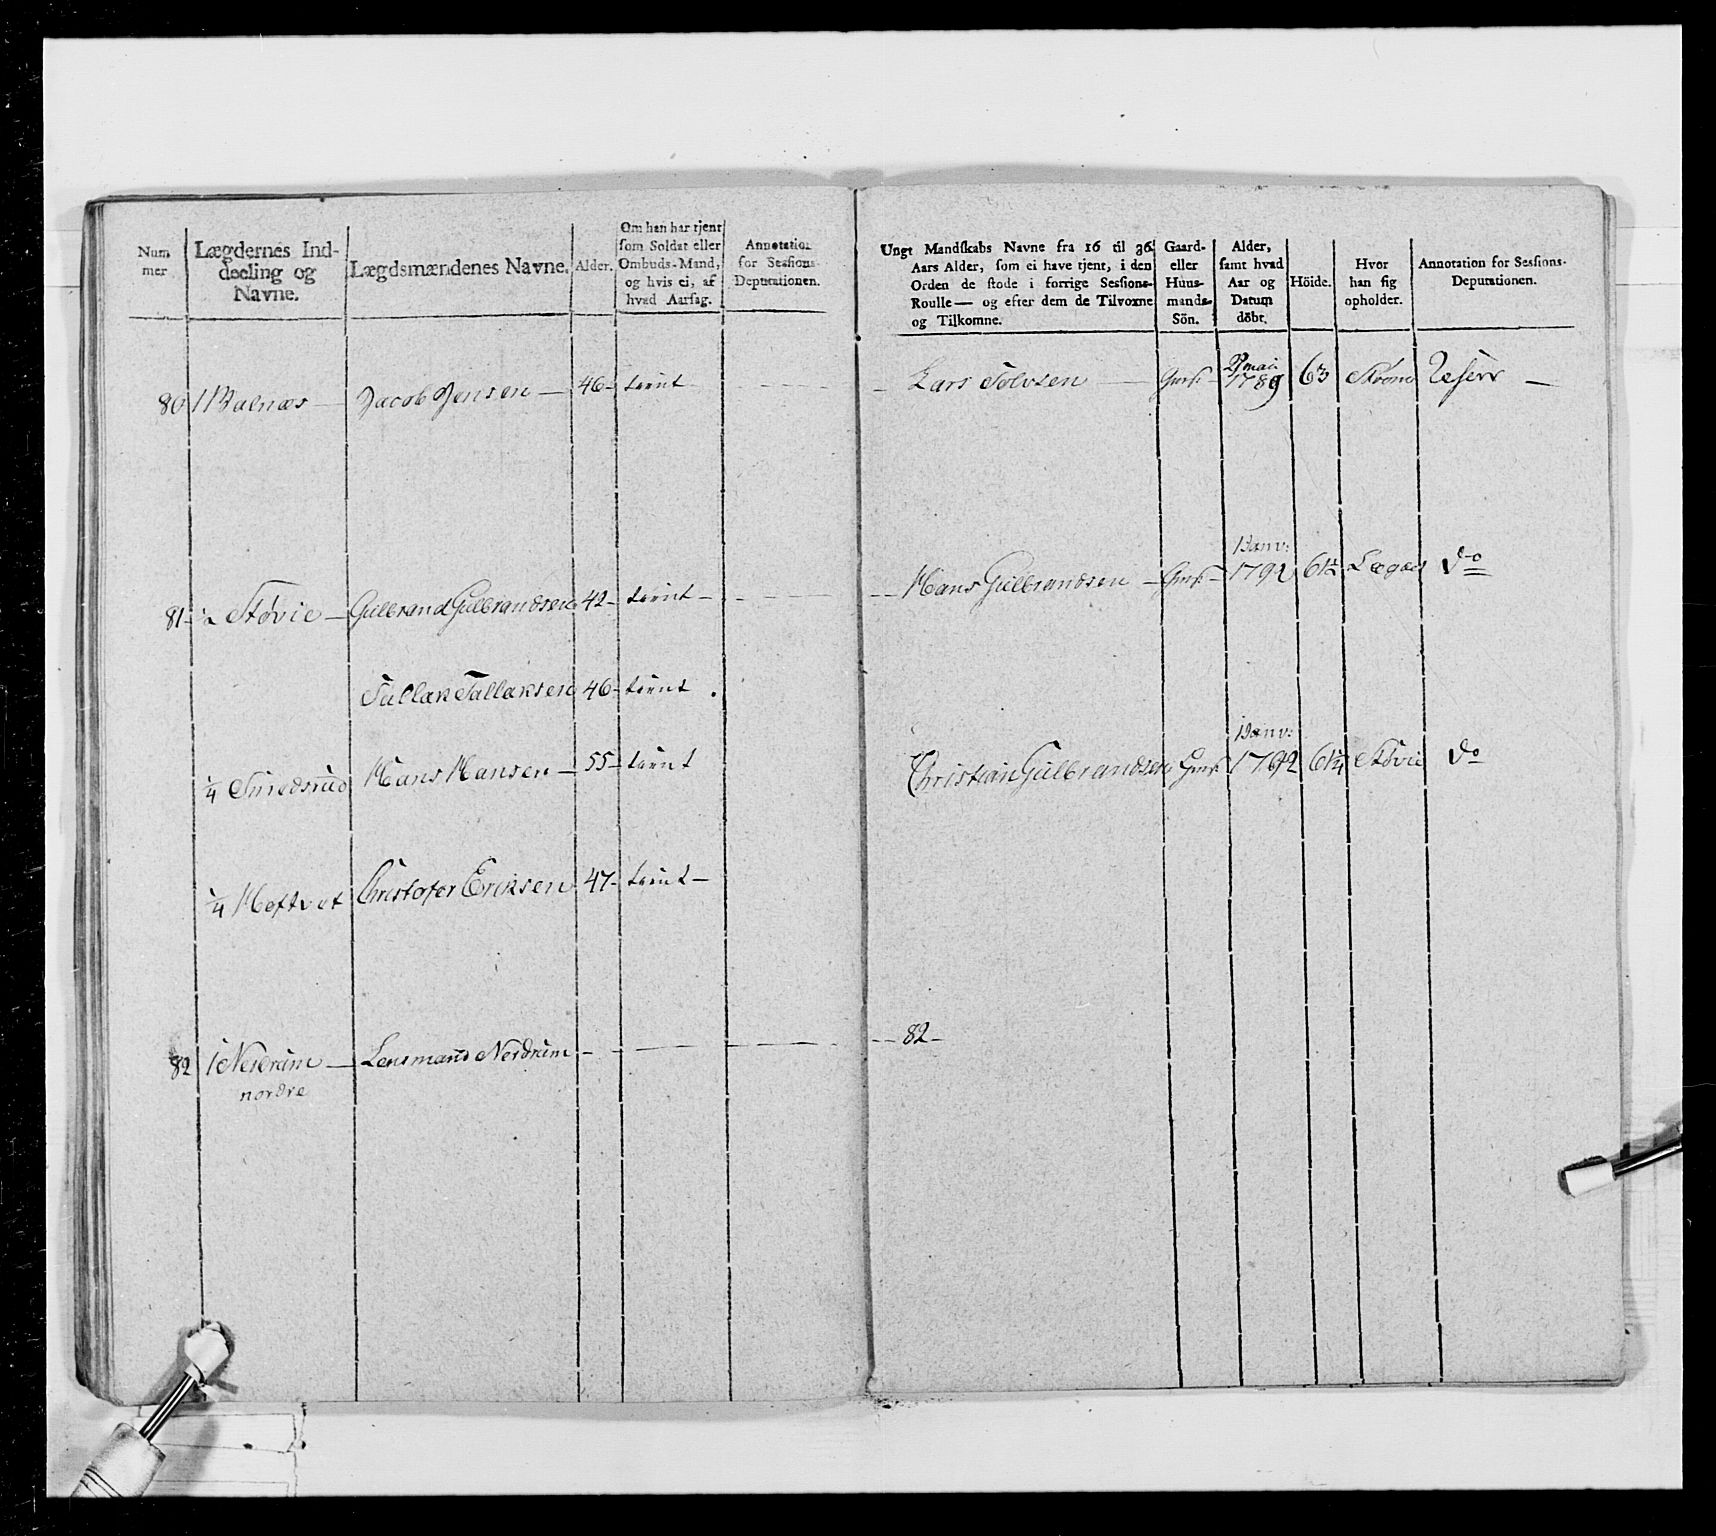 Num
mer
Lægdernes Ind-
deeling og
Navne.
Lægdsmændenes Navne.
Alder.
Om han har tjent
som Soldat eller
Ombuds-Mand,
og hvis ei, af
hvad Aarsag.
Annotation
for Sessions-
Deputationen.
80 1 Walnæs — Jacob Jensen — 46 - tient
81 - ½ Støvie — Gulbrand Gulbrandsen 42 - tient -
Tallak Tallaksen 46 - tient
¼ Smedsrud Hans Hansen — 55 - tient
¼ Heftvet Christofer Eriksen 47 - tient —
82 1 Nerdrum — Lensmand Nerdrum -
nordre
Ungt Mandskabs Navne fra 16 til 36
Aars Alder, som ei have tjent, i den
Orden de stode i forrige Sessions-
Roulle — og efter dem de Tilvoxne
og Tilkomne.
Gaard-
eller
Huus-
mands-
Sön.
Alder,
samt hvad
Aar og
Datum
döbt.
Höide.
Hvor
han sig
opholder.
Annotation for Sessions-
Deputationen.
mai
Lars Tolvsen 1789 63 Reserv —
1 Janv:
Hans Gulbrandsen — 1792 61½ do
1 Janv:
Christian Gulbrandsen 1792 61¼ Støvie do
82 -